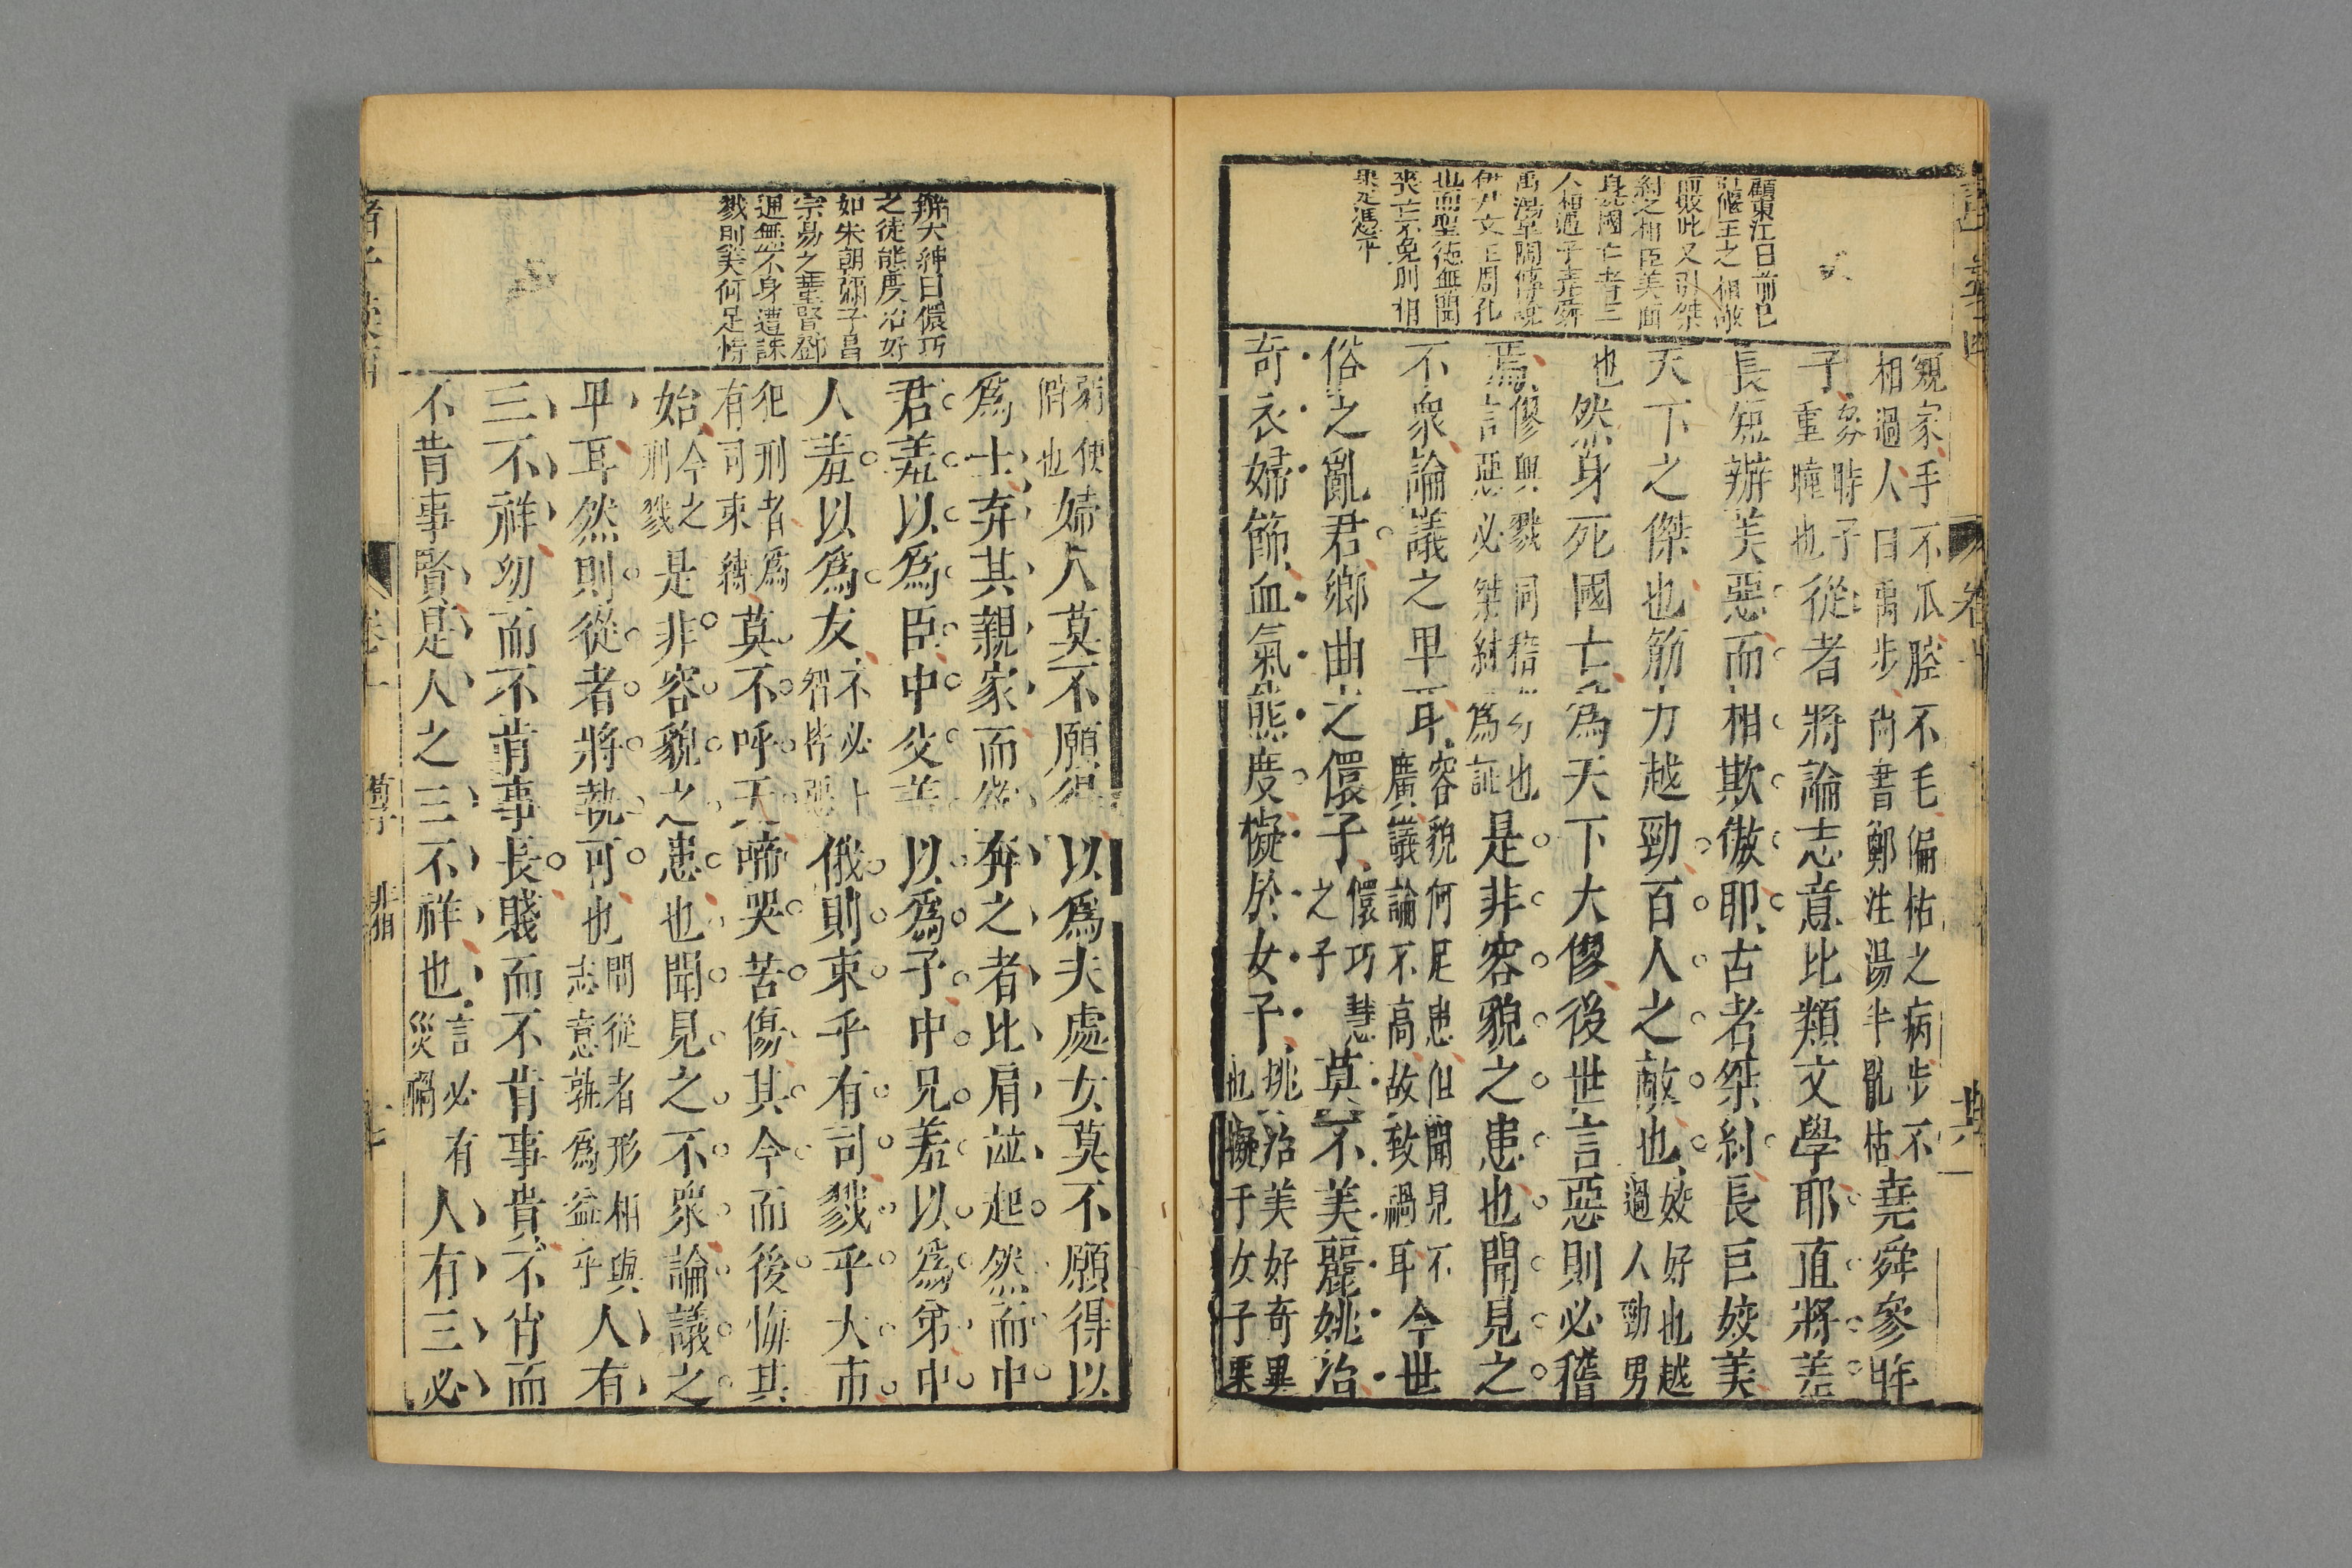 顧東江曰前已
引偃王之相敵
面啟此又引桀
紂之相臣美而
身死國亡者三
人相過乎堯舜
禹湯皐陶傅說
伊尹文王周孔
也而聖德無聞
喪亡不免則相
果足憑乎
窺家手不瓜脛不毛偏枯之病步不
相過人曰禹步尚書鄭注湯半體枯堯舜參牟
子參牟子
重瞳也從者將論志意比類文學耶直將差
長短辨美惡而相欺傲耶古者桀紂長巨姣美
天下之傑也筋力越勁百人之敵也姣好也越
過人勁男
也然身死國亡爲天下大僇後世言惡則必稽
焉僇與戮同稽考也
言惡必桀紂爲証是非容貌之患也聞見之
不衆論議之卑耳容貌何足患但聞見不
廣議論不高故致禍耳今世
俗之亂君鄉曲之儇子儇巧慧
之子莫不美麗姚冶
奇衣婦飾血氣態度擬於女子姚冶美好奇異
也擬于女子柔
辨大紳曰儇巧
之徒態度冶好
如朱朝彌子昌
宗易之董賢鄧
通無不身遭誅
戮則美何足恃
弱使
俏也婦人莫不願得以爲夫處女莫不願得以
爲士弃其親家而欲奔之者比肩並起然而中
君羞以爲臣中父羞以爲子中兄羞以爲弟中
人羞以爲友不必上
智皆惡俄則束乎有司戮乎大市
犯刑者爲
有司束縛莫不呼天啼哭苦傷其今而後悔其
始今之
刑戮是非容貌之患也聞見之不衆論議之
卑耳然則從者將孰可也問從者形相與
志意孰爲益乎人有
三不祥幼而不肯事長賤而不肯事貴不肖而
不肯事賢是人之三不祥也言必有
災禍人有三必